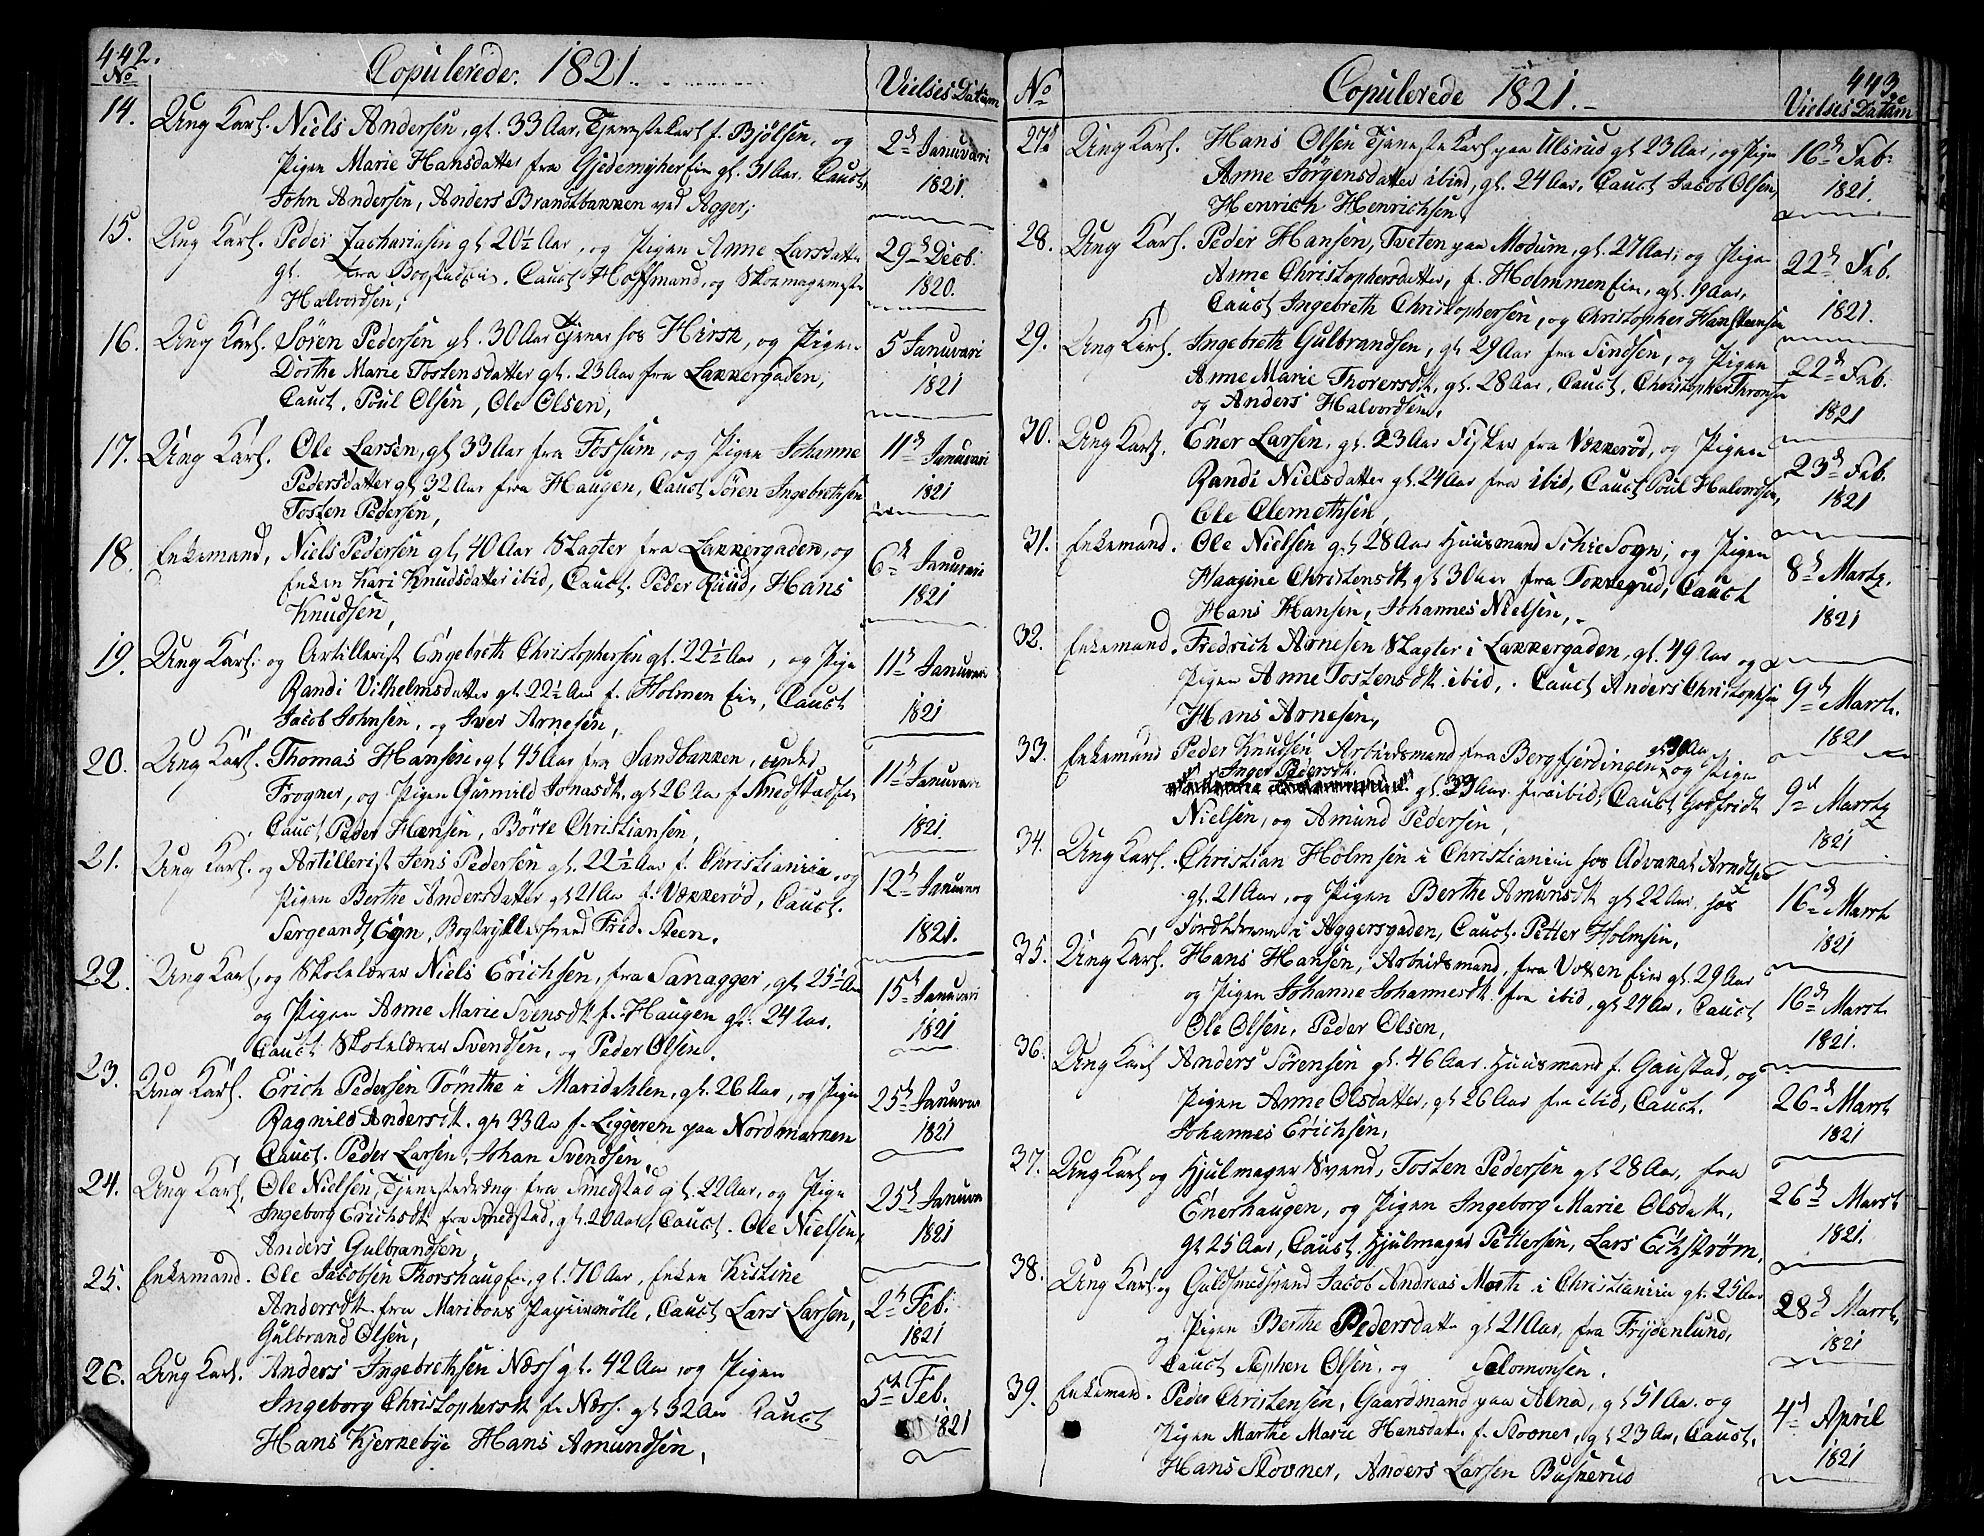 442.
No
Copulerede. 1821.
Vielses Datum
14. Ung Karl. Niels Andersen, gl. 33 Aar, Tjenestekarl f. Bjølsen, og
Pigen Marie Hansdatter fra Gjedemyhr Eie gl. 31 Aar. Cauct.
John Andersen, Anders Brandtbakken ved Agger;
2d Januari
1821.
15. Ung Karl. Peder Zachariasen gl 20½ Aar, og Pigen Anne Larsdatter
gl. fra Bogstadeie. Cauct Hoffmand, og Skoemagermester
Halvordsen;
29d Decb:
1820.
16. Ung Karl. Søren Pedersen gl. 30 Aar Tjener hos Hirsk, og Pigen
Dorthe Marie Tostensdatter gl. 23 Aar fra Lakkergaden,
Cauct. Poul Olsen, Ole Olsen,
5 Januari
1821
17. Ung Karl. Ole Larsen, gl 33 Aar fra Fossum, og Pigen Johanne
Pedersdatter gl 32 Aar fra Haugen, Cauct Søren Ingebrethsen
Tosten Pedersen,
11d Januari
1821
18. Enkemand, Niels Pedersen gl 40 Aar Slagter fra Lakkergaden, og
Enken Kari Knudsdatter ibid, Cauct. Peder Ruud, Hans
Knudsen,
6d Januari
1821
19. Ung Karl. og Artillerist Engebreth Christophersen gl. 22½ Aar, og Pige
Randi Vilhelmsdatter gl 22½ Aar f. Holmen Eie, Cauct
Jacob Johnsen, og Iver Arnesen,
11d Januari
1821
20. Ung Karl. Thomas Hansen, gl 45 Aar fra Sandbakken, under
Frogner, og Pigen Gunnild Jonasdt. gl 26 Aar f. Smedstadeie
Cauct Peder Hansen, Børre Christiansen,
11d Januari
1821.
21. Ung Karl. og Artillerist Jens Pedersen gl. 22½ Aar f. Christiania, og
Pigen Berthe Andersdatter gl 21 Aar f. Vækkerød, Cauct.
Sergeandt Eyn, Bogtrykkersvend Fred. Steen.
12d Januar
1821.
22. Ung Karl, og Skolelærer Niels Erichsen, fra Sanagger, gl 25½ Aar
og Pigen Anne Marie Svensdt f. Haugen gl. 24 Aar.
Cauct Skolelærer Svendsen, og Peder Olsen.
15d Januari
1821
23. Ung Karl. Erich Pedersen Tømthe i Maridahlen, gl. 26 Aar, og Pigen
Ragnild Andersdt. gl 33 Aar f. Liggeren paa Nordmarken
Cauct. Peder Larsen, Johan Svendsen,
25d Januar
1821
24. Ung Karl. Ole Nielsen, Tjenestedreng fra Smedstad gl. 22 Aar, og Pige
Ingeborg Erichsdt fra Smedstad, gl. 20 Aar, Cauct. Ole Nielsen,
Anders Gulbrandsen,
25d Januar
1821
25. Enkemand. Ole Jacobsen Thorshaug Eie, gl. 70 Aar, Enken Kirstine
Andersdt fra Mariboes Papiirmølle, Cauct Lars Larsen,
Gulbrand Olsen,
2d Feb.
1821
26. Ung Karl. Anders Ingebrethsen Næss gl. 42 Aar, og Pigen
Ingeborg Christophersdt f. Næss. gl 32 Aar Cauct
Hans Kjerkebye Hans Amundsen,
5d Feb.
1821
443.
No
Copulerede 1821.
Vielses Datum
27. Ung Karl. Hans Olsen Tjeneste Karl paa Ulsrud gl 23 Aar, og Pige
Anne Jörgensdatter ibid, gl. 24 Aar, Cauct Jacob Olsen,
Henrich Henrichsen,
16d Feb:
1821.
28. Ung Karl. Peder Hansen, Tveten paa Modum, gl. 27 Aar, og Pige
Anne Christophersdatter, f. Holmmen Eie, gl. 19 Aar,
Cauct Ingebreth Christophersen, og Christopher Hansteensen
22d Feb.
1821.
29. Ung Karl. Ingebreth Gulbrandsen, gl 29 Aar fra Sindsen, og Pigen
Anne Marie Thorersdt, gl. 28 Aar, Cauct, Christopher Thronsen
og Anders Halvordsen,
22d Feb.
1821
30. Ung Karl. Ener Larsen, gl. 23 Aar Fisker fra Vækkerød, og Pigen
Randi Nielsdatter gl. 24 Aar fra ibid, Cauct Poul Halvordsen,
Ole Clemethsen,
23d Feb.
1821
31. Enkemand. Ole Nielsen gl 28 Aar Huusmand Schie Sogn, og Pigen
Haagine Christensdt gl 30 Aar fra Tokkerud, Cauct
Hans Hansen, Johannes Nielsen,
8d Martz.
1821
32. Enkemand. Fredrich Arnesen Slagter i Lakkergaden, gl. 49 Aar og
Pigen Anne Tostensdt. ibid, Cauct Anders Christophersen
Hans Arnesen,
9d Marts.
1821
33. Enkemand Peder Knudsen Arbeidsmand fra Bergfjerdingen gl 30 Aar og Pigen
Inger Pedersdt. gl. 39 Aar fra ibid, Cauct Godfridt
Nielsen, og Amund Pedersen,
9d Martz
1821
34. Ung Karl. Christian Holmsen i Christiania hos Advokat Arndtzen
gl. 21 Aar, og Pigen Berthe Amunsdt gl 22 Aar hos
i Aggersgaden, Cauct. Petter Holmsen.
16d Marts
1821
35. Ung Karl. Hans Hansen, Arbeidsmand, fra Voxen Eie gl. 29 Aar
og Pigen Johanne Johannesdt fra ibid, gl 27 Aar, Cauct
Ole Olsen, Peder Olsen,
16d Marts.
1821.
36. Ung Karl Anders Sørensen gl. 46 Aar Huusmand f. Gaustad, og
Pigen Anne Olsdatter, gl 26 Aar fra ibid, Cauct.
Johannes Erichsen,
26d Marts
1821
37. Ung Karl og Hjulmager Svend, Tosten Pedersen gl 28 Aar, fra
Enerhaugen, og Pigen Ingeborg Marie Olsdatter,
gl 25 Aar, Cauct. Hjulmager Pettersen, Lars Eihstrøm,
26d Marts
1821.
38. Ung Karl og Guldsmedsvend Jacob Andreas Morth i Christiania gl. 25 Aar
og Pigen Berthe Pedersdatter gl 21 Aar, fra Frydenlund,
Cauct Stephen Olsen, og Salomonsen.
28d Marts,
1821
39. Enkemand. Peder Christensen, Gaardmand paa Alna, gl 51 Aar og
Pigen Marthe Marie Hansdatter f. Stovner, gl 23 Aar, Cauct.
Hans Stovner, Anders Larsen Buskerud
4d April
1821